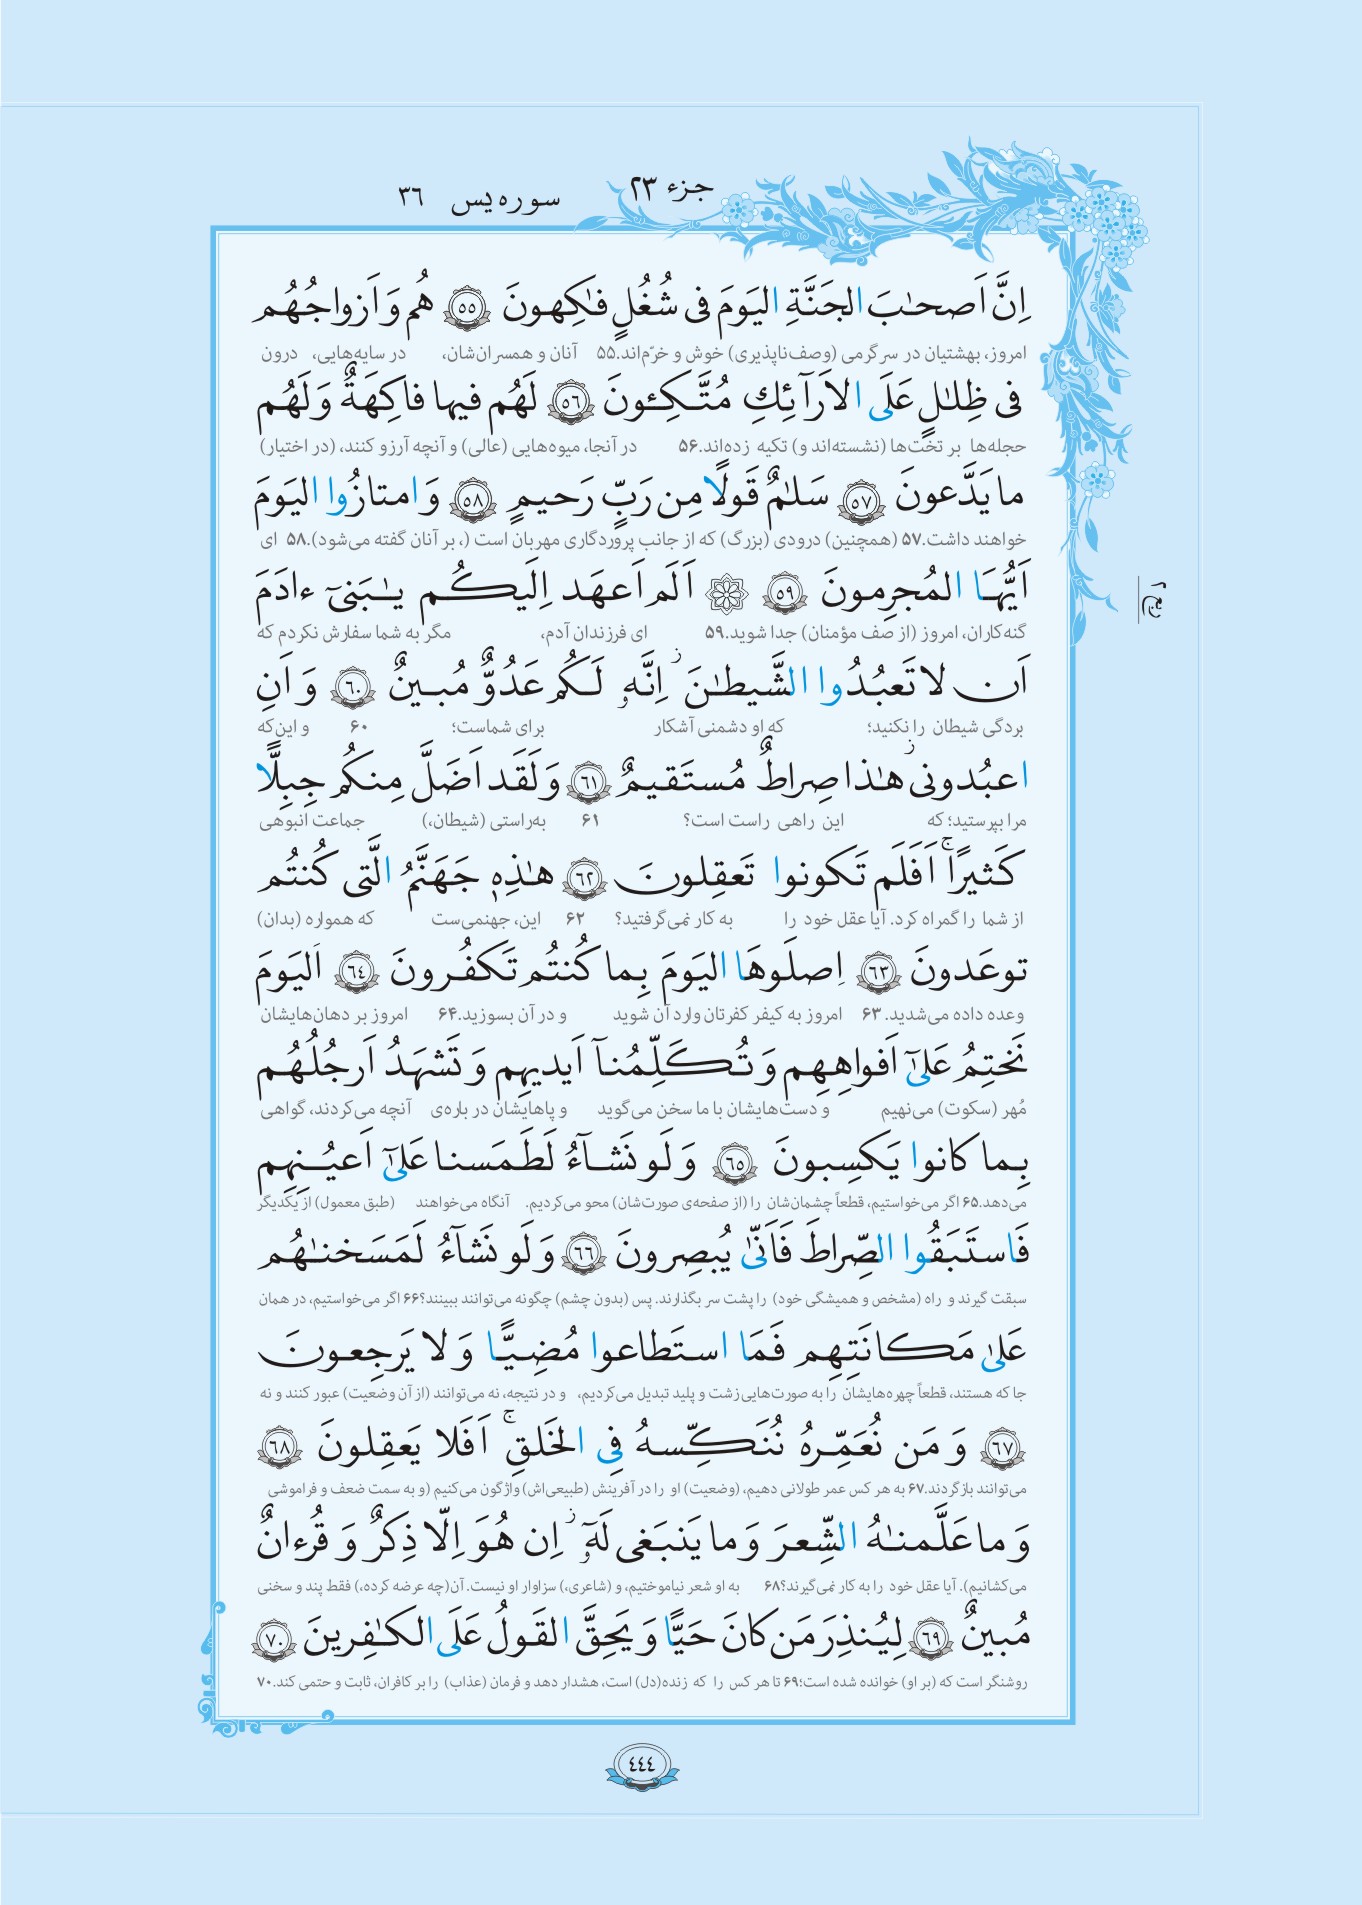 جزء ٢٣
سوره یس ٣٦
اِنَّ اَصحـٰبَ الجَنَّةِ اليَومَ فى شُغُلٍ فـٰكِهونَ ٥٥ هُم وَ اَزواجُهُم
امروز، بهشتیان در سرگرمی (وصف‌ناپذیری) خوش و خرّم‌اند.۵۵ آنان و همسران‌شان، در سایه‌هایی، درون
فى ظِلـٰلٍ عَلَى الاَرآئِكِ مُتَّكِـئونَ ٥٦ لَهُم فيها فاكِهَةٌ وَ لَهُم
حجله‌ها بر تخت‌ها (نشسته‌اند و) تکیه زده‌اند.۵۶ در آنجا، میوه‌هایی (عالی) و آنچه آرزو کنند، (در اختیار)
ما يَدَّعونَ ٥٧ سَلـٰمٌ قَولًا مِن رَبٍّ رَحيمٍ ٥٨ وَ امتازُوا اليَومَ
خواهند داشت.۵۷ (همچنین) درودی (بزرگ) که از جانب پروردگاری مهربان است (، بر آنان گفته می‌شود).۵۸ ای
اَيُّهَا المُجرِمونَ ٥٩ اَلَم اَعهَد اِلَيكُم يـٰبَنىٓ ءادَمَ
گنه‌کاران، امروز (از صف مؤمنان) جدا شوید.۵۹ ای فرزندان آدم، مگر به شما سفارش نکردم که
ربع ٢
اَن لا تَعبُدُوا الشَّيطـٰنَ ز اِنَّهٗ لَكُم عَدُوٌّ مُبينٌ ٦٠ وَ اَنِ
بردگی شیطان را نکنید؛ که او دشمنی آشکار برای شماست؛ ۶۰ و این‌که
اعبُدونى ز هـٰذا صِراطٌ مُستَقيمٌ ٦١ وَ لَقَد اَضَلَّ مِنكُم جِبِلًّا
مرا بپرستید؛ که این راهی راست است؟ ۶۱ به‌راستی (شیطان،) جماعت انبوهی
كَثيرًا ج اَفَلَم تَكونوا تَعقِلونَ ٦٢ هـٰذِهٖ جَهَنَّمُ الَّتى كُنتُم
از شما را گمراه کرد. آیا عقل خود را به کار نمی‌گرفتید؟ ۶۲ این، جهنمی‌ست که همواره (بدان)
توعَدونَ ٦٣ اِصلَوهَا اليَومَ بِما كُنتُم تَكفُرونَ ٦٤ اَليَومَ
وعده داده می‌شدید. ۶۳ امروز به کیفر کفرتان وارد آن شوید و در آن بسوزید.۶۴ امروز بر دهان‌هایشان
نَختِمُ عَلىٰٓ اَفواهِهِم وَ تُكَلِّمُنآ اَيديهِم وَ تَشهَدُ اَرجُلُهُم
مُهر (سکوت) می‌نهیم و دست‌هایشان با ما سخن می‌گوید و پاهایشان در باره‌ی آنچه می‌کردند، گواهی
بِما كانوا يَكسِبونَ ٦٥ وَ لَو نَشـآءُ لَطَمَسنا عَلىٰٓ اَعيُنِهِم
می‌دهد.۶۵ اگر می‌خواستیم، قطعاً چشمان‌شان را (از صفحه‌ی صورت‌شان) محو می‌کردیم. آنگاه می‌خواهند (طبق معمول) از یکدیگر
فَاستَبَقُوا الصِّراطَ فَاَنّىٰ يُبصِرونَ ٦٦ وَ لَو نَشآءُ لَمَسَخنـٰهُم
سبقت گیرند و راه (مشخص و همیشگی خود) را پشت سر بگذارند. پس (بدون چشم) چگونه می‌توانند ببینند؟۶۶ اگر می‌خواستیم، در همان
عَلىٰ مَكانَتِهِم فَمَا استَطاعوا مُضِيًّا وَ لا يَرجِعونَ
جا که هستند، قطعاً چهره‌هایشان را به صورت‌هایی زشت و پلید تبدیل می‌کردیم، و در نتیجه، نه می‌توانند (از آن وضعیت) عبور کنند و نه
٦٧ وَ مَن نُعَمِّرهُ نُنَكِّسهُ فِى الخَلقِ ج اَفَلا يَعقِلونَ ٦٨
می‌توانند بازگردند.۶۷ به هر کس عمر طولانی دهیم، (وضعیت) او را در آفرینش (طبیعی‌اش) واژگون می‌کنیم (و به سمت ضعف و فراموشی
وَ ما عَلَّمنـٰهُ الشِّعرَ وَ ما يَنبَغى لَهٗٓ ز اِن هُوَ اِلّا ذِكرٌ وَ قُرءانٌ
می‌کشانیم). آیا عقل خود را به کار نمی‌گیرند؟۶۸ به او شعر نیاموختیم، و (شاعری،) سزاوار او نیست. آن(چه عرضه کرده،) فقط پند و سخنی
مُبينٌ ٦٩ لِيُنذِرَ مَن كانَ حَيًّا وَ يَحِقَّ القَولُ عَلَى الكـٰفِرينَ ٧٠
روشنگر است که (بر او) خوانده شده است؛۶۹ تا هر کس را که زنده(دل) است، هشدار دهد و فرمان (عذاب) را بر کافران، ثابت و حتمی کند.۷۰
٤٤٤